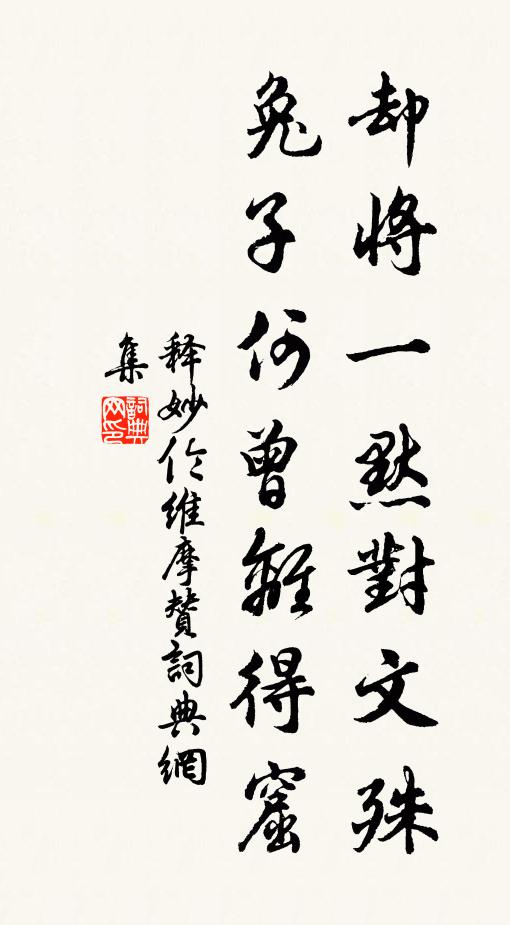 却將一默對文殊
兔子何曾離得窟
释妙伦維摩贊詞典網
集
詞典网印